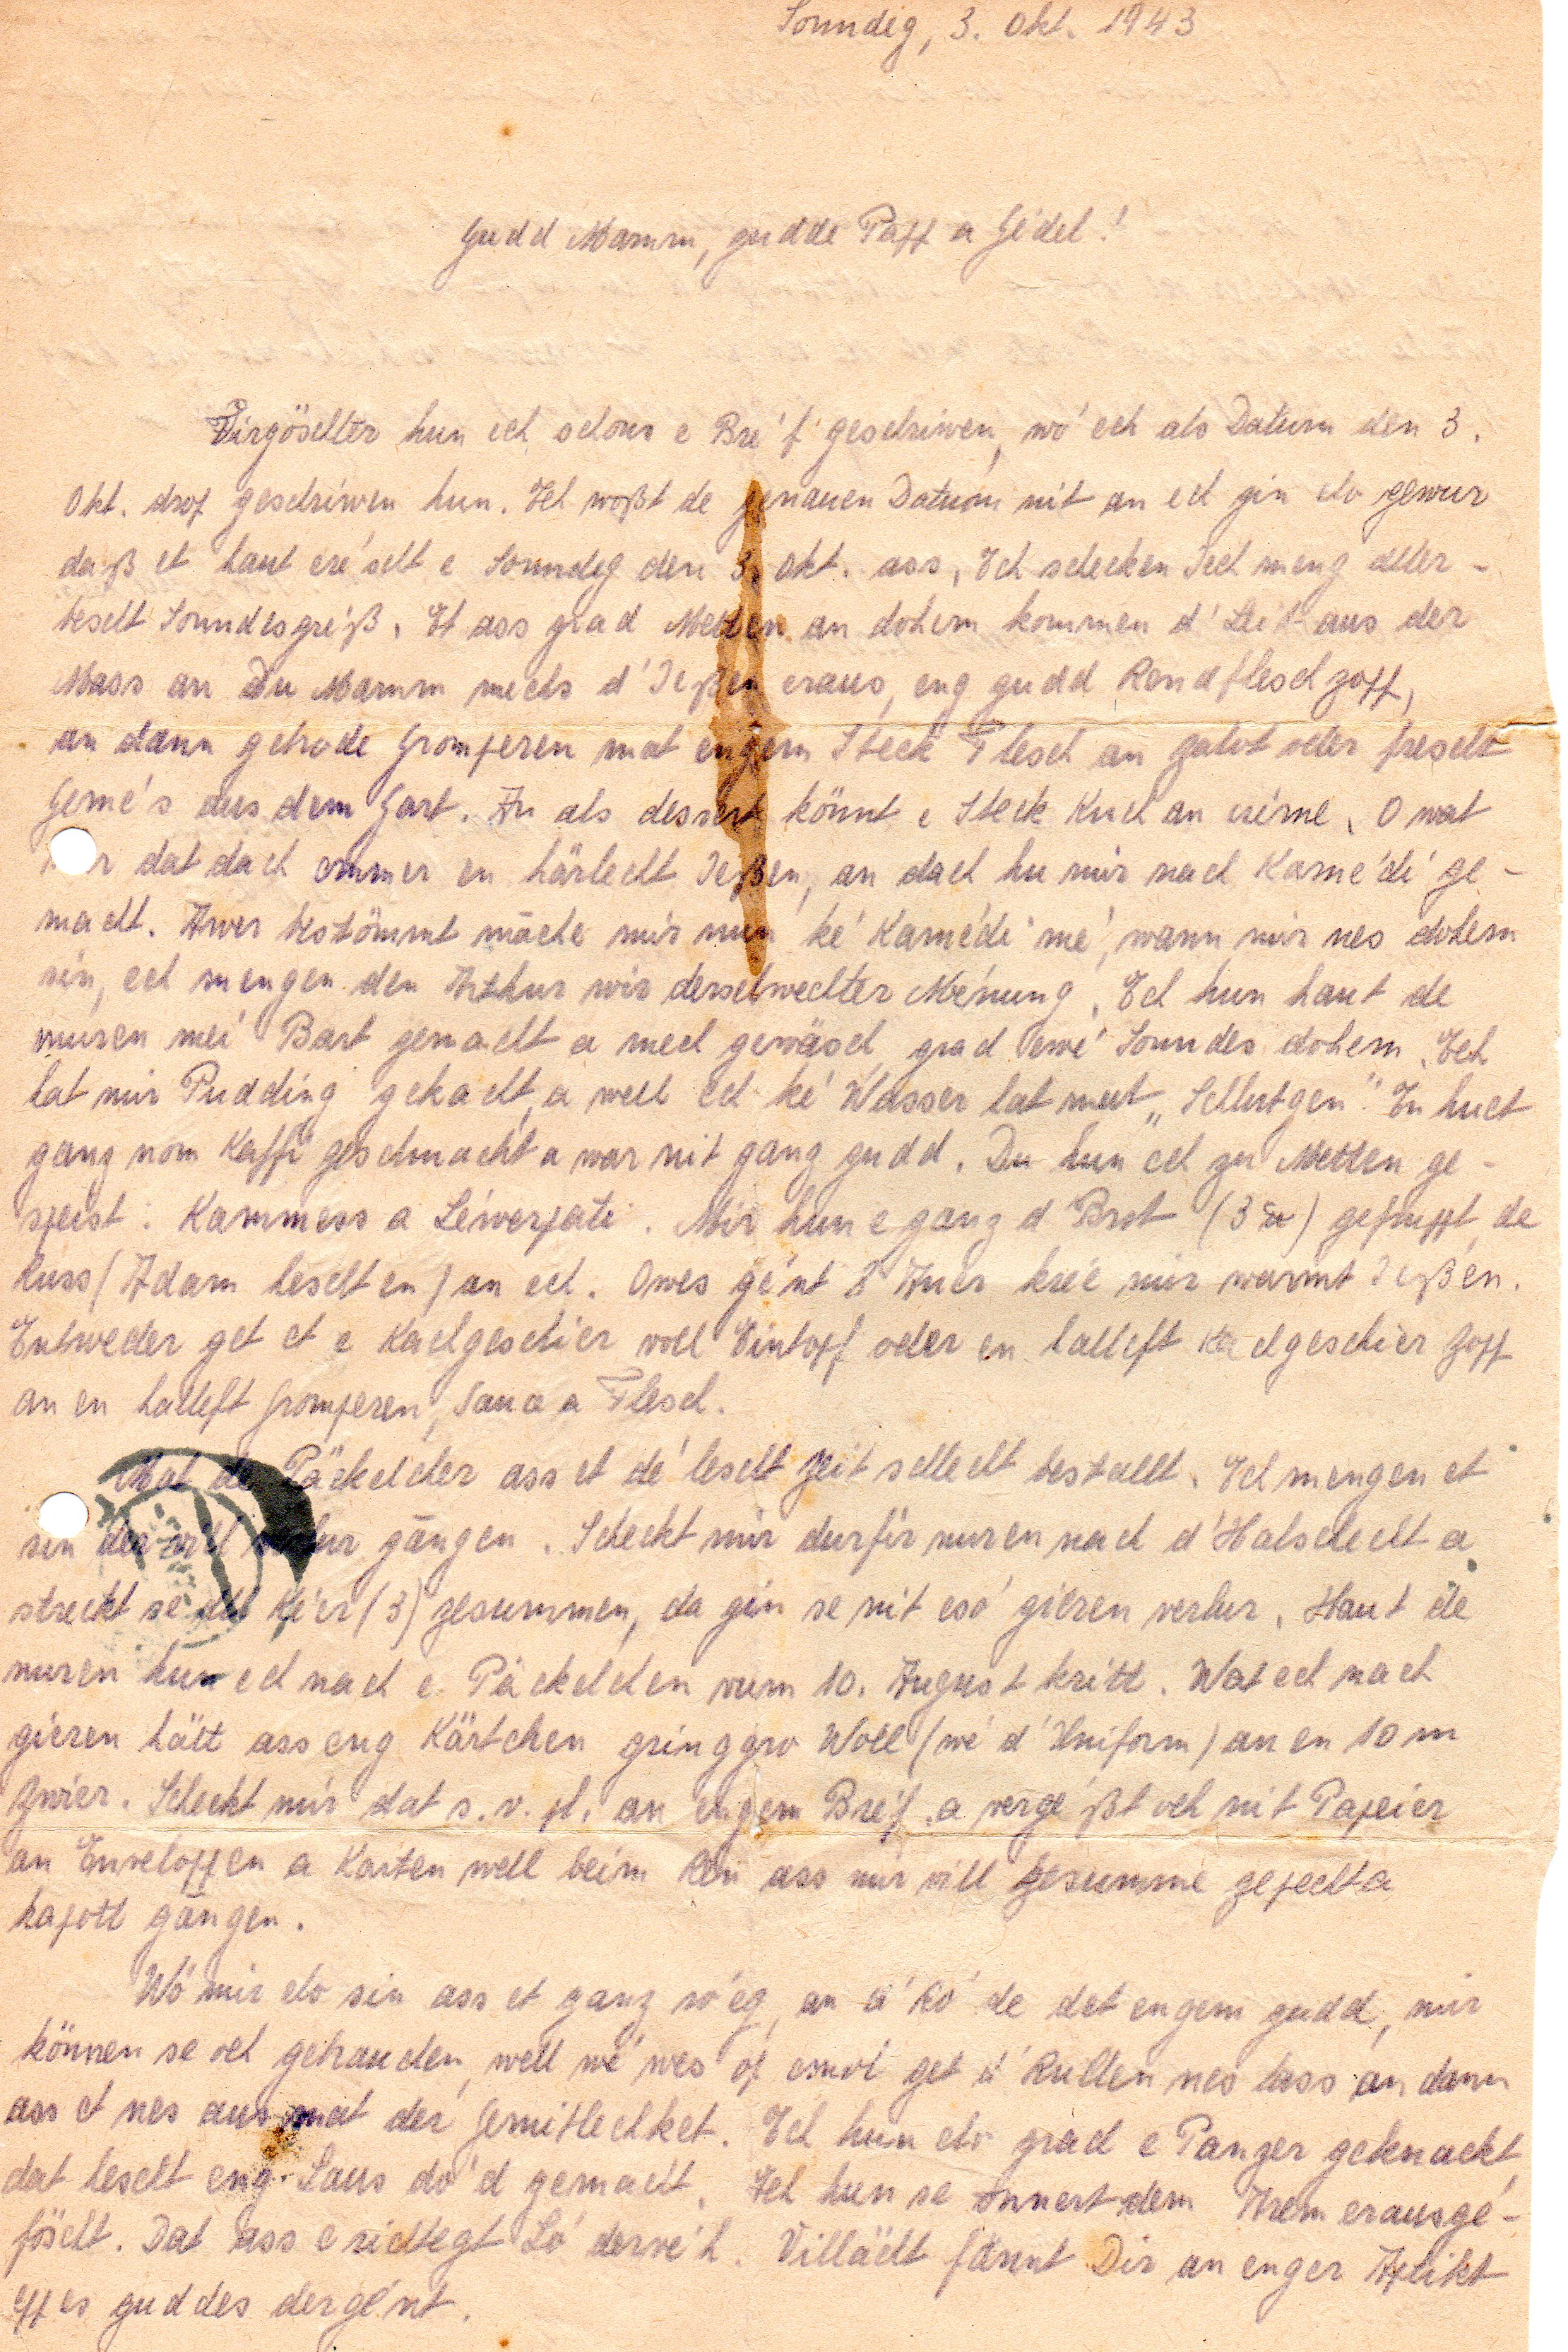 Sonndeg, 3. Okt. 1943
Gudd Mamm, gudde Papp a Gédel!
Virgöschter hun ech schons e Bré'f geschriwen, wó ech als Datum den 3.
Okt. drop geschriwen hun. Ech woßt de genauen Datum nit an ech gin elo gewur
daß et haut eré'scht e Sonndeg den 3. Okt. ass, Ech schecken Iech meng aller-
bescht Sonndesgré'ß. Et ass grad Metten an dohém kommen d'Leit aus der
Mass an Du Mamm mechs d'Ießen eraus, eng gudd Rendfleschzopp,
an dann gebrode Gromperen mat engem Steck Flesch an Zalot oder frescht
Gemé's aus dem Gart. An als dessert könnt e Steck Kuch an crème. O wat
dat dach ommer en härlecht Ießen, an dach hu mir nach Kamé'di ge-
macht. Awer bestömmt mache mir nun ké' Kamé'di mé', wann mir nes dohem
sin, ech mengen den Arthur wir derselwechter Ménung. Ech hun haut de
muren mei Bart gemacht a mech gewäsch grad ewé Sonndes dohem. Ech
hat mir Pudding gekacht, a well ech ké' Wasser hat mat „Selbutgen". En huet
ganz nom Kaffi geschmacht a war nit ganz gudd. Du hun ech zu Metten ge-
speist: Kammess a Léwerpati. Mir hun e ganz d Brot (3 ℔) gefruppt, de
Russ (Adam hescht en) an ech. Owes gé'nt 8 Auer krié mir warmt Ießen.
Entweder get et e Kachgeschier voll Eintopf oder en halleft Kachgeschier Zopp
an en halleft Gromperen, Saua a Flesch.
Mat de Päckelcher ass et dé' lescht Zeit schlecht bestallt. Ech mengen et
sin der vill verlur gāngen. Scheckt mir durfir nuren nach d'Halschecht a
streckt sé all Ké'er (3) zesummen, da gin se nit esó gieren verlur. Haut de
muren hun ech nach e Päckelchen vum 10. August kritt. Wat ech nach
gieren hätt ass eng Kärtchen gringgro Woll (wé d'Uniform) an en 10 m
Zwier. Scheckt mir dat s.v.pl. an engem Bréif a vergé'ßt och nit Papeier
an Enveloppen a Karten well beim Rén ass mir vill zesumme gepecht a
kapott gāngen.
Wó mir elo sin ass et ganz ró'eg, an d'Ró' de det engem gudd, mir
können se och gebrauchen, well wé' wes op emol get d'Rullen nes lass an dann
ass et nes aus mat der Gemitlechket. Ech hun elo grad e Panzer geknackt,
dat hescht eng Laus dó'd gemacht. Ech hun se önnert dem Arem erausge-
föscht. Dat ass e richtegt Ló' dervé'h. Villächt fännt Dir an enger Aptikt
eppes guddes dergé'nt.